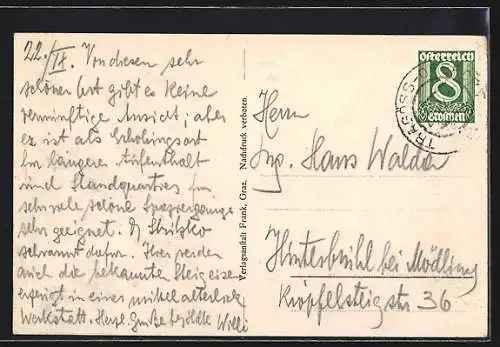 22./IX. Von diesem sehr
schönen Ort gibt es keine
vernünftige Ansicht; aber
er ist als Erholungsort
bei längerem Aufenthalt
und Standquartier für
sehr viele schöne Spaziergänge
sehr geeignet.
schwärmt dafür. Hier werden
auch die bekannten Steigeisen
erzeugt in einer
Werkstatt. Herzl. Grüße Willi
Verlagsanstalt Frank, Graz. Nachdruck verboten.
Österreich
8
Groschen
TRAGÖSS
Herrn
Ing. Hans Walda
Hinterbrühl bei Mödling
Kröpfelsteigstr 36